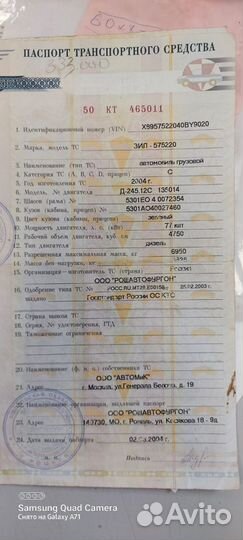 ПАСПОРТ ТРАНСПОРТНОГО СРЕДСТВА
50 КТ 465011
1. Идентификационный номер (VIN) X9957522040BY9020
2. Марка, модель ТС ЗИЛ - 575220
3. Наименование (тип ТС) автомобиль грузовой
4. Категория ТС (А, В, С, D, прицеп) С
5. Год изготовления ТС 2004 г.
6. Модель, № двигателя Д-245.12С 135014
7. Шасси (рама) № 5301ЕО 4 0072354
8. Кузов (кабина, прицеп) № 5301АО40027460
9. Цвет кузова (кабины, прицепа) зеленый
10. Мощность двигателя, л. с. (кВт) 77 квт
11. Рабочий объем двигателя, куб. см 4750
12. Тип двигателя дизель
13. 
14. Разрешенная максимальная масса, кг 6950
15. Масса без нагрузки, кг
16. Организация - изготовитель ТС (страна) ООО "РОШАВТОФУРГОН" Россия
17. Одобрение типа ТС № РОСС RU.МТ25.Е00158 25.02.2003 г.
выдано Госстандарт России ОС КТС
17. Страна вывоза ТС
18. Серия, № удостоверения, ГТД
19. Таможенные ограничения
20. Наименование (ф. и. о.) собственника ТС
ООО "АВТОМиК"
21. Адрес г. Москва, ул.Генерала Белова, д. 19
22. Наименование организации, выдавшей паспорт
ООО "РОШАВТОФУРГОН"
23. Адрес 140730, МО, г. Рошаль, ул. Косякова 18 - 9д
24. Дата выдачи паспорта 02. 2004 г.
М. П. Подпись
Samsung Quad Camera
Снято на Galaxy A71
Avito